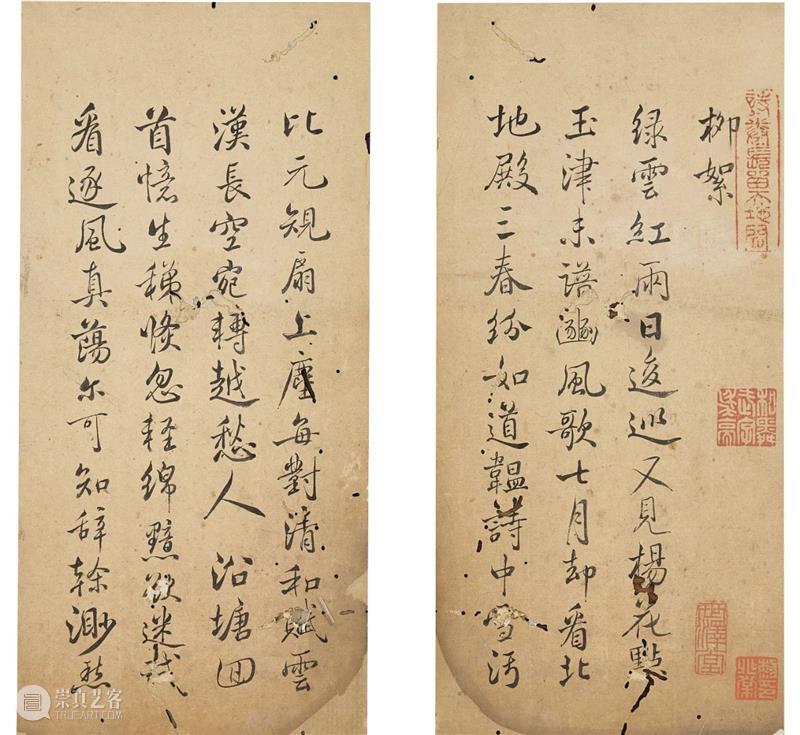 柳絮
緑雲紅雨日逡巡又見楊花點
玉津未諳豳風歌七月却看北
地殿三春紛如道韞詩中雪污
比元規扇上塵每對清和賦雲
漢長空宛轉越愁人 沿塘回
首憶生稊倏忽輕綿黯欲迷試
看逐風真蕩尔可知辞幹渺愁
詩卷長留天地間
崇真艺客
TRUEART.COM